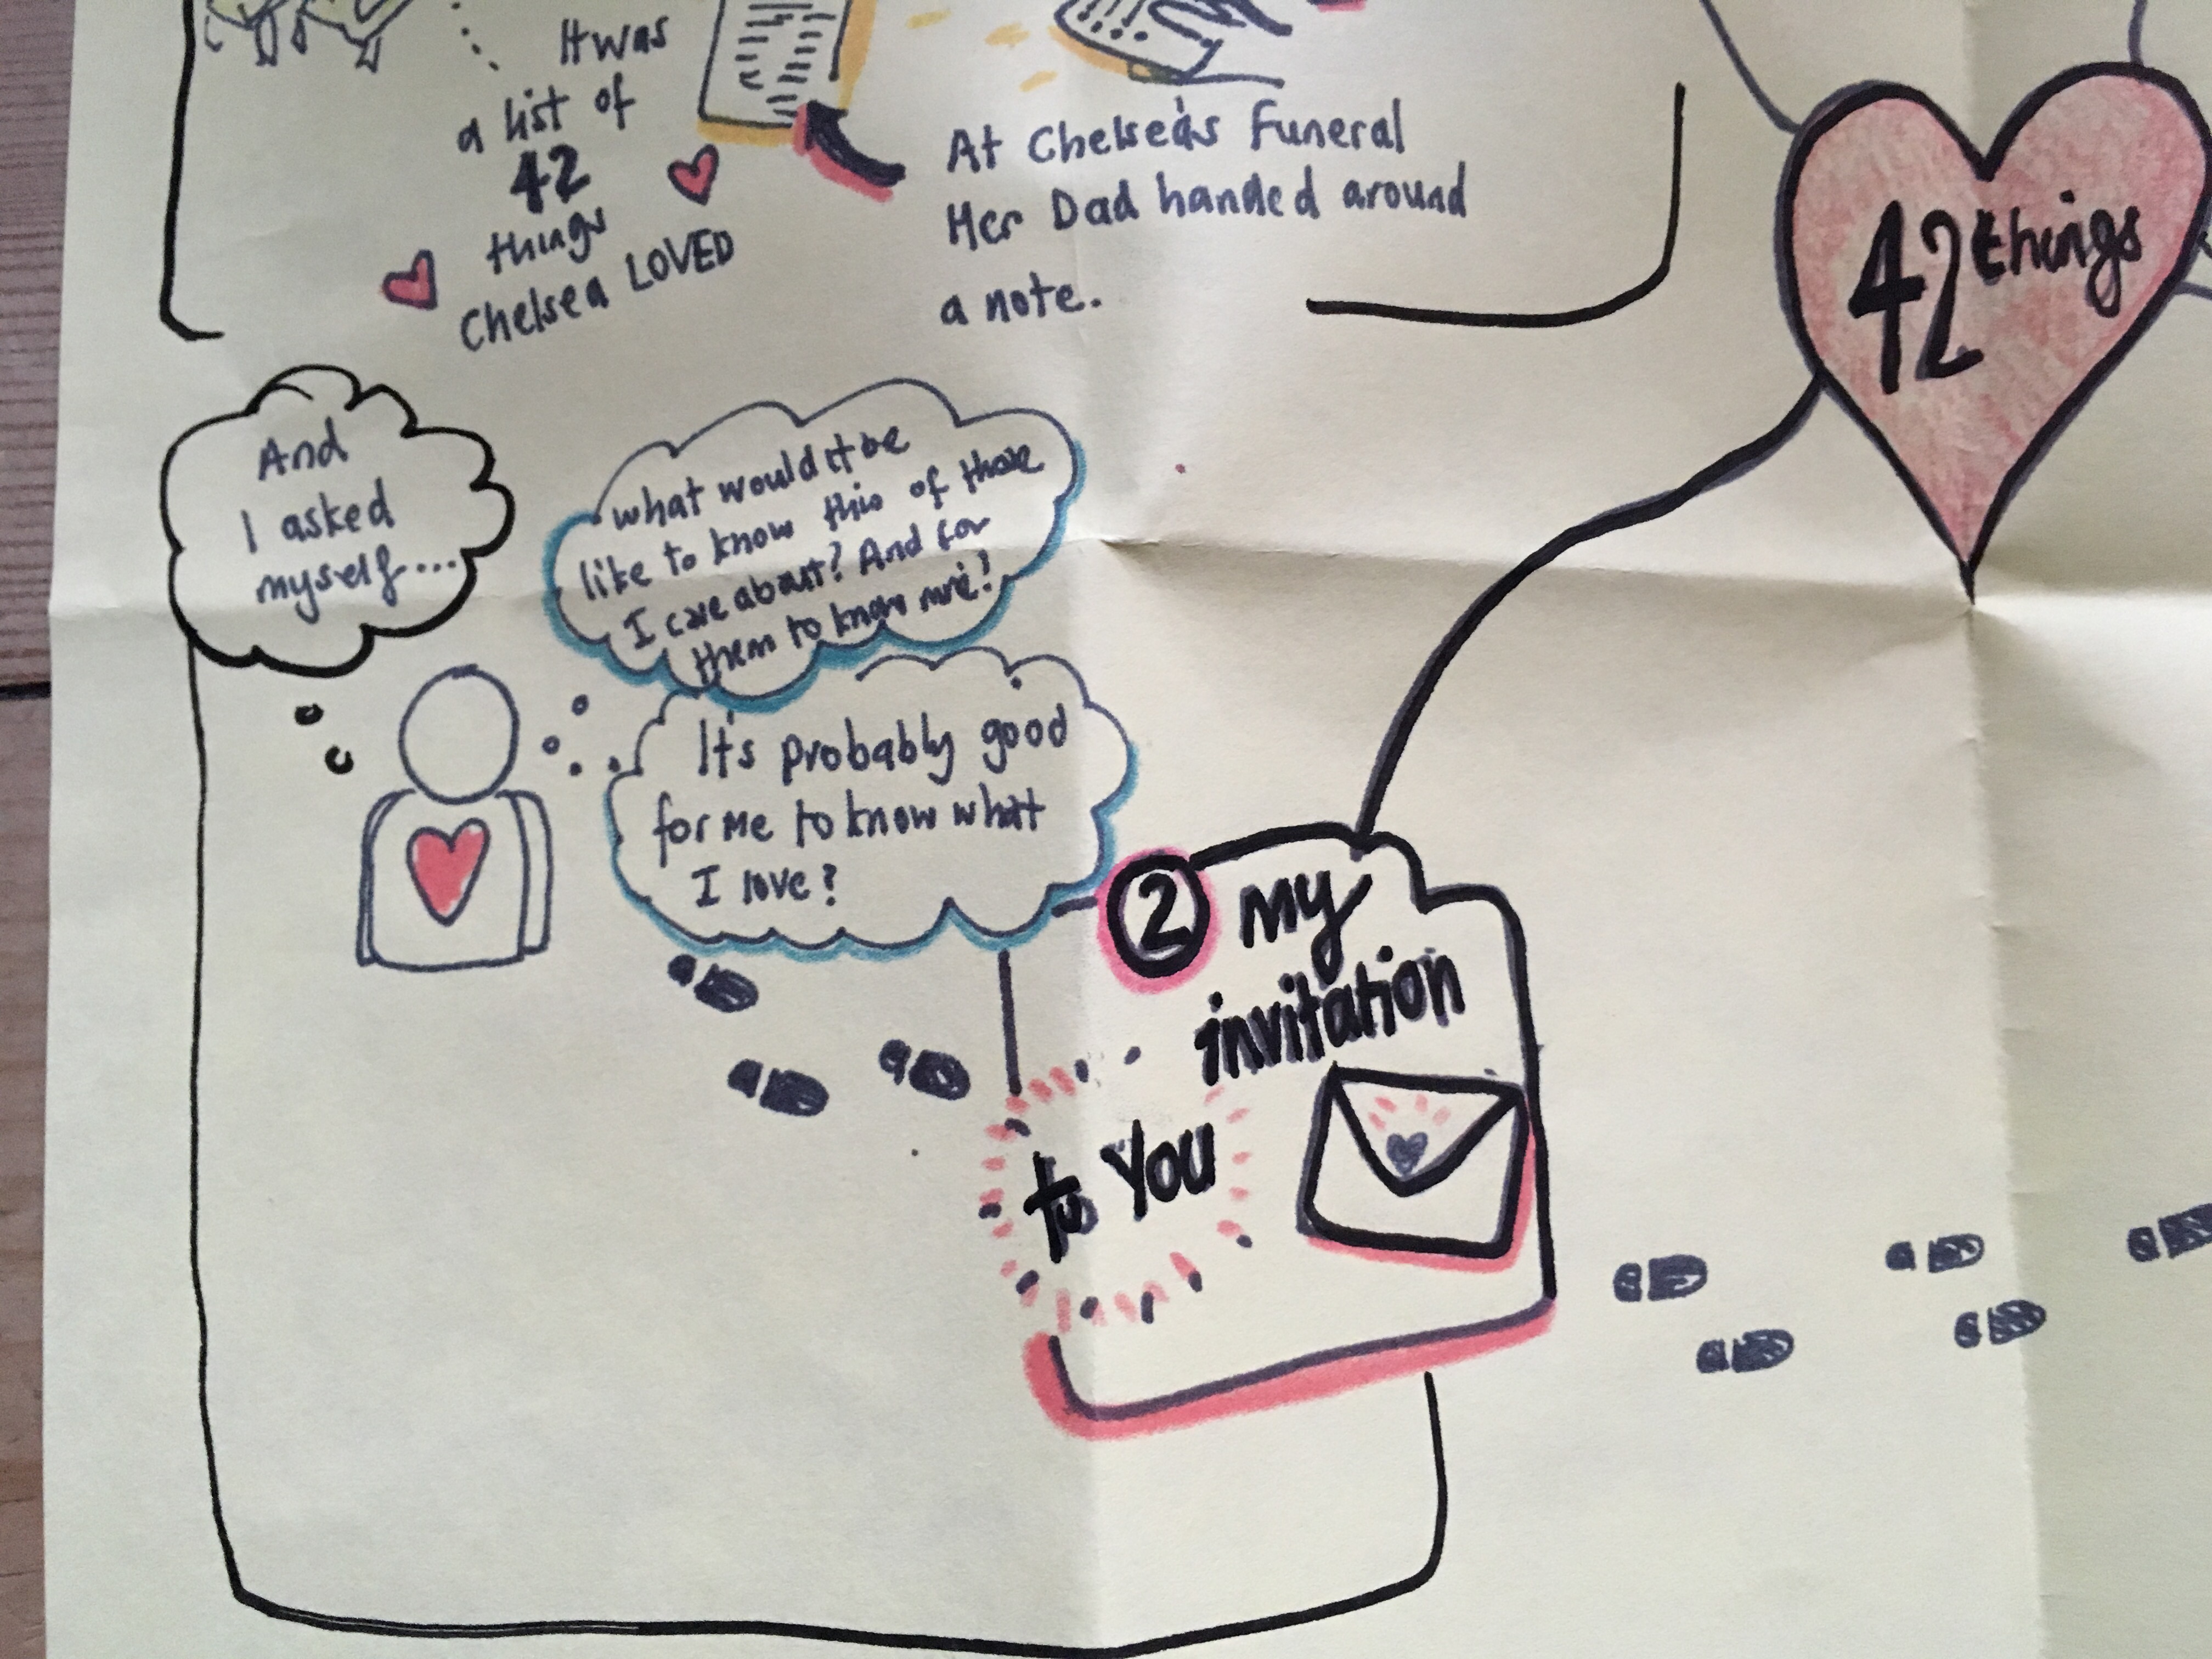 It was
a list of
42
things
Chelsea LOVED
At Chelsea's Funeral
Her Dad handed around
a note.
42 things
And
I asked
myself...
what would it be
like to know this of those
I care about? And for
them to know me?
It's probably good
for me to know what
I love?
2 my
invitation
to You